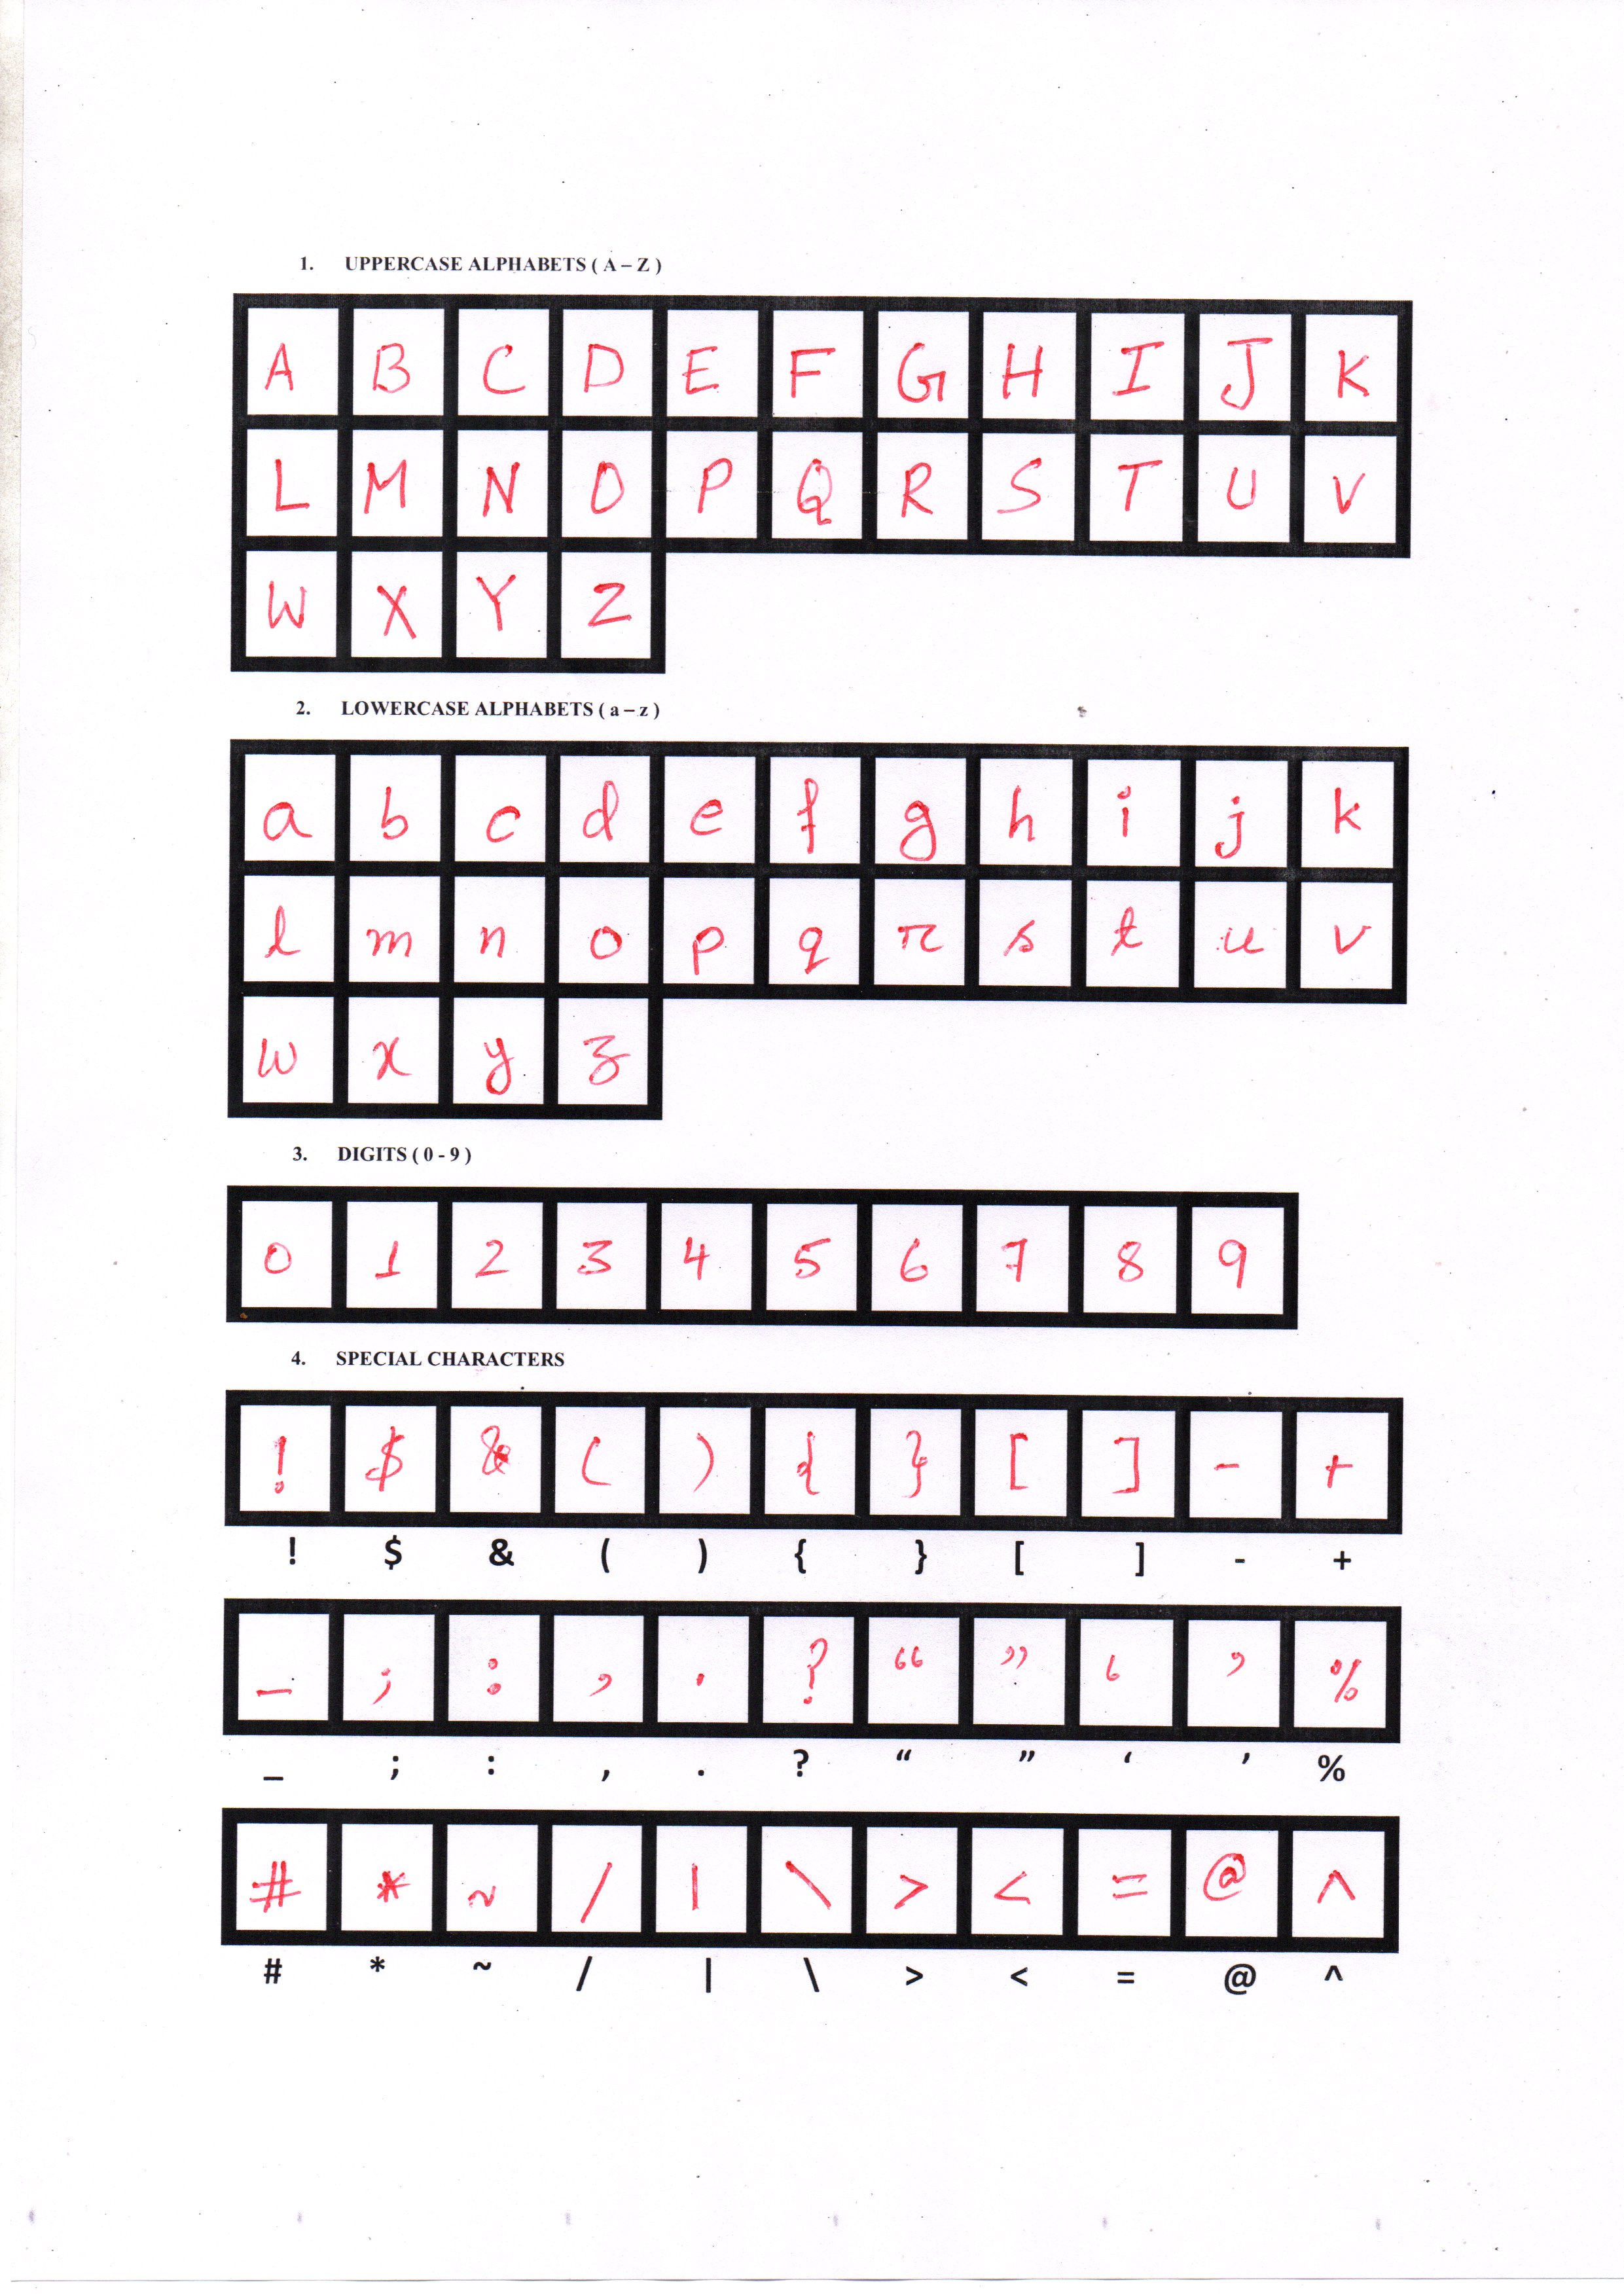 1. UPPERCASE ALPHABETS ( A – Z )
A B C D E F G H I J K
L M N O P Q R S T U V
W X Y Z
2. LOWERCASE ALPHABETS ( a – z )
a b c d e f g h i j k
l m n o p q r s t u v
w x y z
3. DIGITS ( 0 - 9 )
0 1 2 3 4 5 6 7 8 9
4. SPECIAL CHARACTERS
! $ & ( ) { } [ ] - +
! $ & ( ) { } [ ] - +
_ ; : , . ? “ ” ‘ ’ %
_ ; : , . ? “ ” ‘ ’ %
# * ~ / | \ > < = @ ^
# * ~ / | \ > < = @ ^